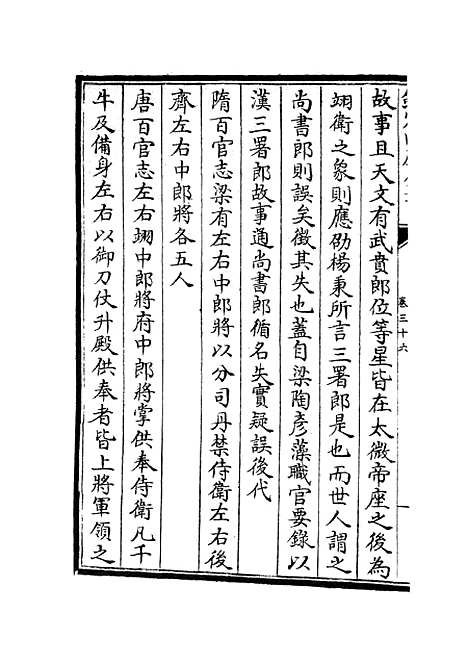 卷三十六
故事且天文有武賁郎位等星皆在太微帝座之後為
翊衛之象則應劭楊秉所言三署郎是也而世人謂之
尚書郎則誤矣徴其失也蓋自梁陶彦藻職官要錄以
漢三署郎故事通尚書郎循名失實疑誤後代
隋百官志梁有左右中郎將以分司丹禁侍衛左右後
齊左右中郎將各五人
唐百官志左右翊中郎將府中郎將掌供奉侍衛凡千
牛及備身左右以御刀仗升殿供奉者皆上將軍領之